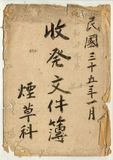 民國三十五年一月
收発文件簿
煙草科